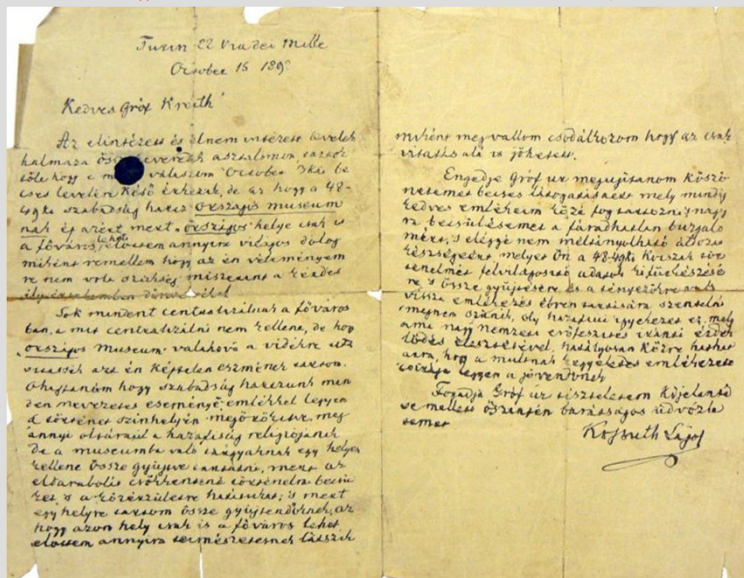 Turin 22 Via dei Mille
October 15 189
Kedves Gróf Kreith!
Az elintézett és el nem intézett levelek
halmaza össze asztalomon,
hogy válaszom October 3káki be
cses levelére késő érkezik, de az hogy a 48-
49ki szabadság harcz országos museum
nak és azért mert országos helye csak is
a főváros lehet, előttem annyira világos dolog
miként remellem hogy az én véleményem
re nem volt szükség miszerint a kérdés
Sok mindent centralizálnak a főváros
ban, a mit centralizálni nem kellene, de hogy
országos museum valahová a vidékre
azt én képtelen eszmének tartom.
Óhajtanám hogy szabadság harczunk min
den nevezetes eseménye emlékkel legyen
a történet színhelyén megörökítve, meg
annyi oltáraul a hazafiság religiójának
de a museumba való tárgyaknak egy helyen
kellene össze gyűjtve tartatni, mert az
eldarabolás csökkentené történelmi becsü
ket, s a közérzületre hatásukat; is mert
egy helyre tartom össze gyűjtendőknek, az
hogy azon hely csak is a főváros lehet
előttem annyira természetesnek látszik
miként megvallom csodálkozom hogy az csak
vitatás alá is jöhetett.
Engedje Gróf ur megujítanom köszö
netemet becses látogatásáért mely mindig
kedves emlékeim közé fog tartozni, nagy
ra becsülésemet a fáradhatlan buzgalo
mért, s eléggé nem méltányolható áldozat
készségeért, melyet Ön a 48-49ki korszak tör
ténelmét felvilágosító adatok kifürkészésé
re s össze gyűjtésére és a tényezőkre való
vissza emlékezés ébren tartására szentelni
meg nem szűnik, oly hazafiui igyekezet ez, mely
ami nagy nemzeti erőfeszítés iránti érdek
lődés élesztésével, hatályosan közre hathat
arra, hogy a multnak kegyeletes emlékezete
legyen a jövendőnek
Fogadja Gróf ur tiszteletem kijelenté
se mellett őszintén barátságos üdvözle
temet
Kossuth Lajos